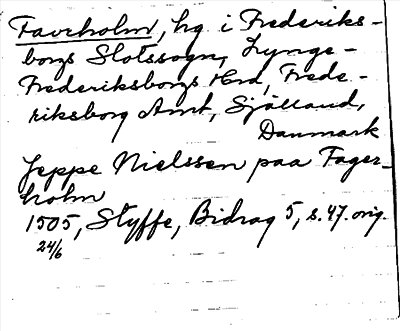 Favrholm, hg. i Frederiks-
borgs Slotssogn, Lynge-
Frederiksborgs Hrd, Frede-
riksborg Amt, Sjölland,
Danmark
Jeppe Nielssen paa Fager-
holm
1505, Styffe, Bidrag 5, s. 47. orig.
24/6